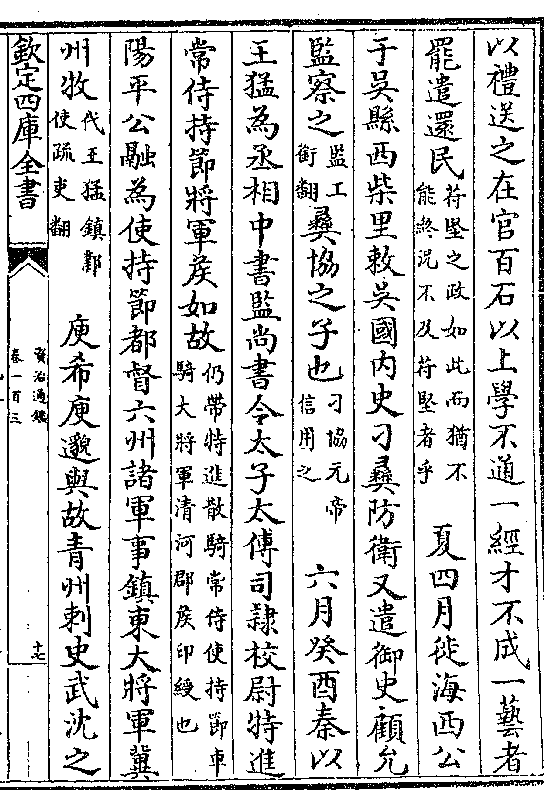 以禮送之在官百石以上學不通一經才不成一藝者
罷遣還民苻堅之政如此而猶不能終況不及苻堅者乎 夏四月徙海西公
于吳縣西柴里敕吳國內史刁彝防衛又遣御史顧允
監察之監工銜翻彝協之子也刁協元帝信用之 六月癸酉秦以
王猛為丞相中書監尚書令太子太傅司隸校尉特進
常侍持節將軍矦如故仍帶特進散騎常侍使持節車騎大將軍清河郡矦印綬也
陽平公融為使持節都督六州諸軍事鎮東大將軍冀
州牧代王猛鎮鄴使疏吏翻 庾希庾邈與故青州刺史武沈之
欽定四庫全書
資治通鑑
卷一百三
十七